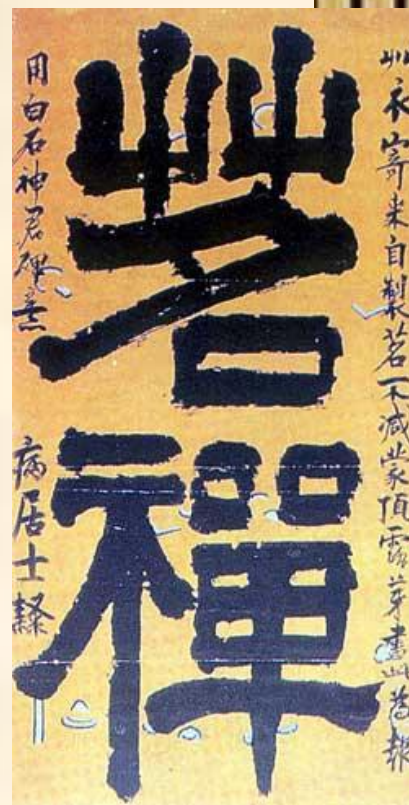 艸衣寄來自製茗不減蒙頂露芽書此為報
茗禪
用白石神君碑意 病居士隸